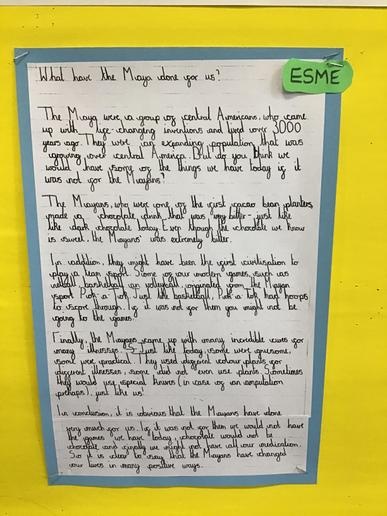 ESME
What have the Maya done for us?
The Maya were a group of central Americans, who came
up with life changing inventions and lived over 3000
years ago. They were an expanding population that was
growing over central America. But do you think we
would have some of the things we have today if it
was not for the Mayans?
The Mayans, who were one of the first cacao bean planters,
made a chocolate drink that was very bitter - just like
like dark chocolate today. Even though the chocolate we know
is sweet, the Mayans' was extremely bitter.
In addition, they might have been the first civilisation to
play a team sport. Some of our modern games, such as
netball, basketball or volleyball, originated from the Mayan
sport Pok a Tok. Just like basketball, Pok a Tok had hoops
to score through. If it was not for them you might not be
going to the games.
Finally, the Mayans came up with many incredible cures for
many illnesses. Just like today, some were gruesome,
some were practical. They used different colour plants for
different illnesses, some did not even use plants. Sometimes
they would use special knives (in case of an amputation
perhaps), just like us!
In conclusion, it is obvious that the Mayans have done
very much for us. If it was not for them we would not have
the games we have today, chocolate would not be
chocolate and finally we might not have all our medication.
So it is clear to say that the Mayans have changed
our lives in many positive ways.